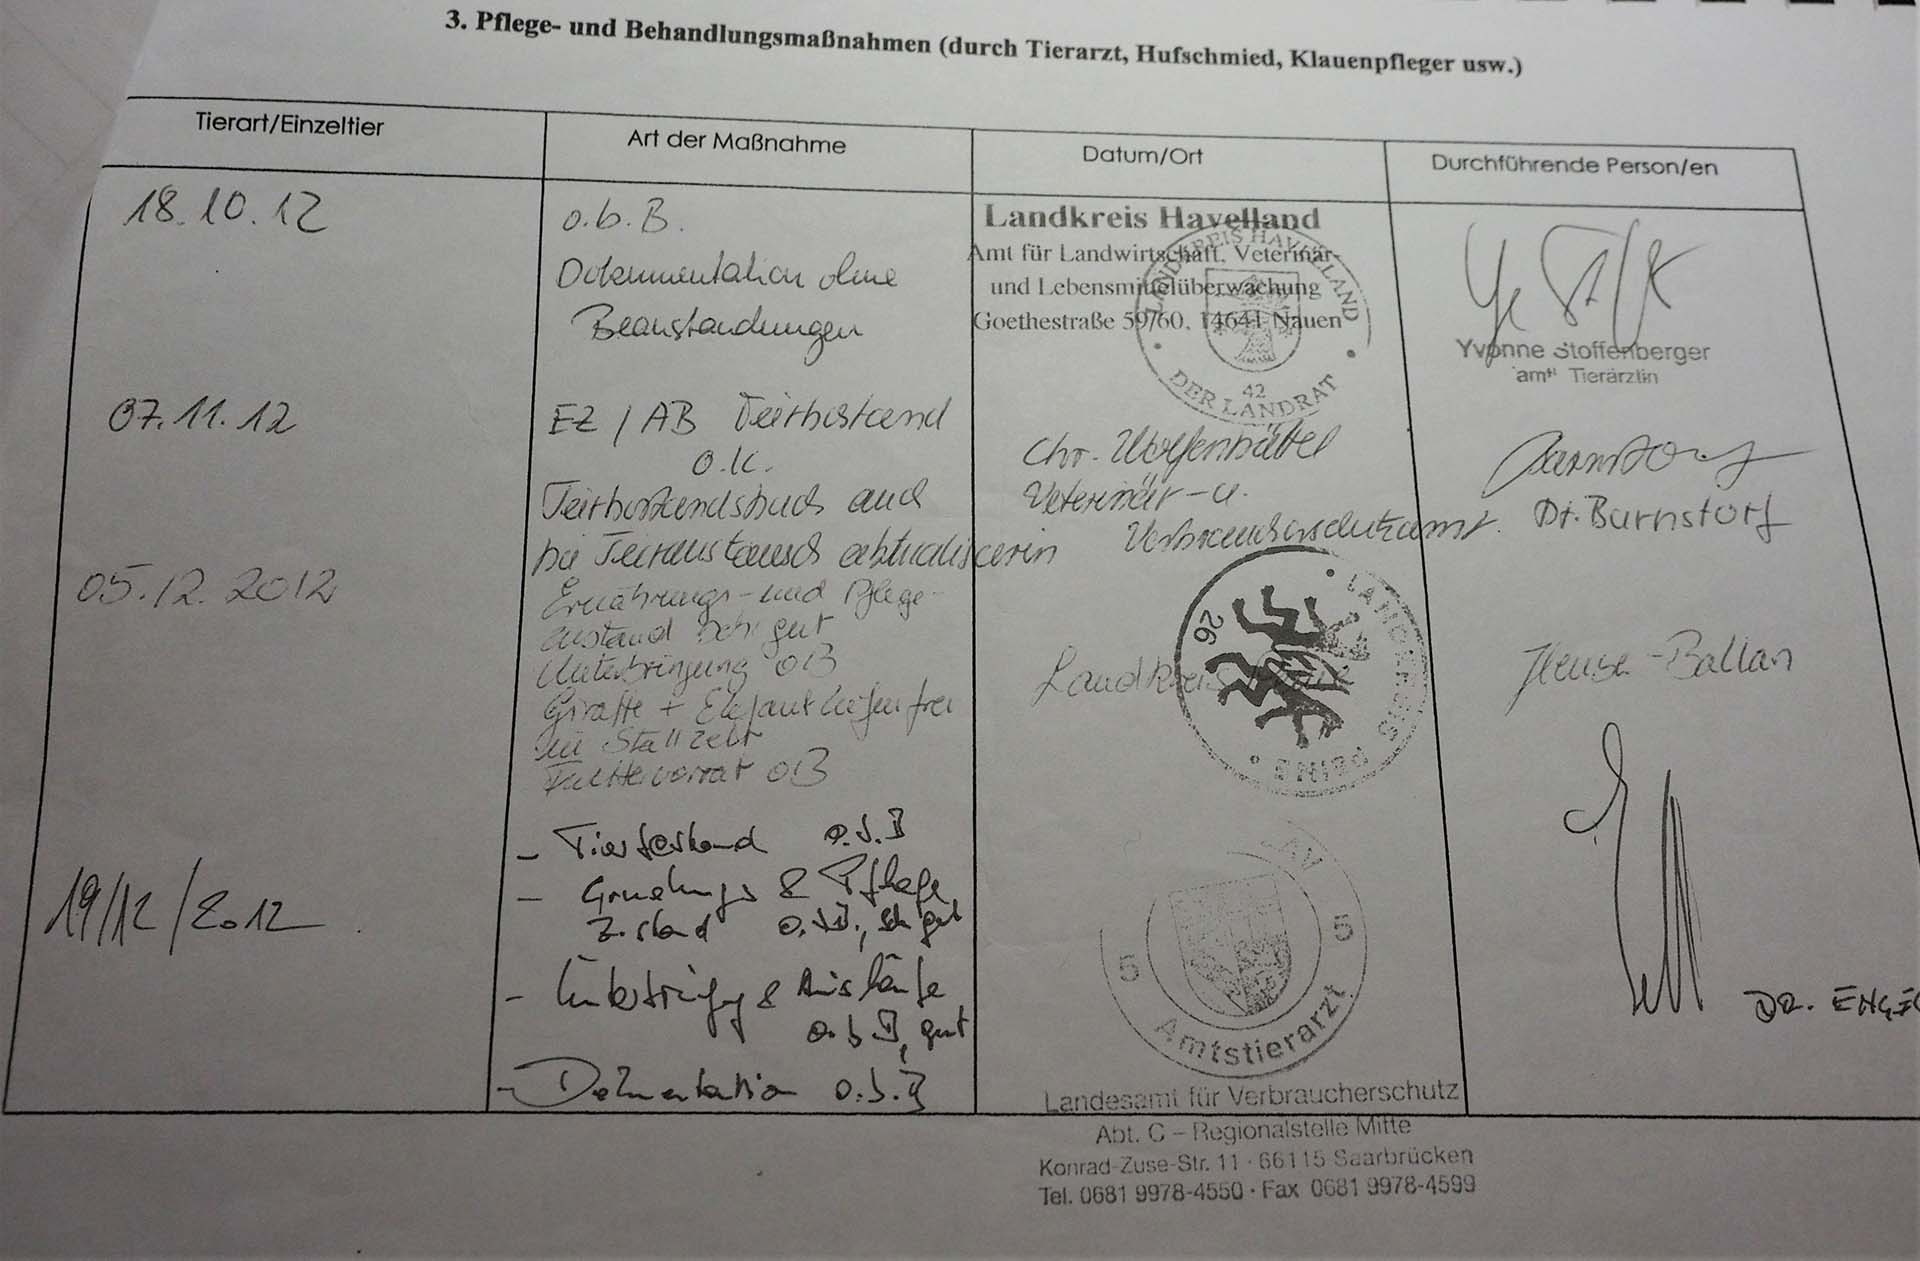 3. Pflege- und Behandlungsmaßnahmen (durch Tierarzt, Hufschmied, Klauenpfleger usw.)
Tierart/Einzeltier
Art der Maßnahme
Datum/Ort
Durchführende Person/en
18.10.12
o.b.B.
Dokumentation ohne
Beanstandungen
Landkreis Havelland
Amt für Landwirtschaft, Veterinär-
und Lebensmittelüberwachung
Goethestraße 59/60, 14641 Nauen
LANDKREIS HAVELLAND
42
DER LANDRAT
Yvonne Stoffenberger
amtl Tierärztin
07.11.12
EZ / AB Tierbestand
o.k.
Tierbestandsbuch auch
bei Tieraustausch aktualisieren
Chr. Wolfenbüttel
Veterinär-u.
Verbraucherschutzamt.
Dr. Barnstorf
05.12.2012
Ernährungs- und Pflege-
zustand sehr gut
Unterbringung oB
Giraffe + Elefant liefen frei
im Stallzelt
Futtervorrat oB
Landkreis Peine
26
LANDKREIS PEINE
19/12/2012
- Tierbestand o.b.B
- Ernährungs & Pflege
Zustand o.b.B., sehr gut
- Unterbringung & Ausläufe
o.b.B, gut
- Dokumentation o.b.B
5 5
Amtstierarzt
Landesamt für Verbraucherschutz
Abt. C – Regionalstelle Mitte
Konrad-Zuse-Str. 11 · 66115 Saarbrücken
Tel. 0681 9978-4550 · Fax 0681 9978-4599
DR.